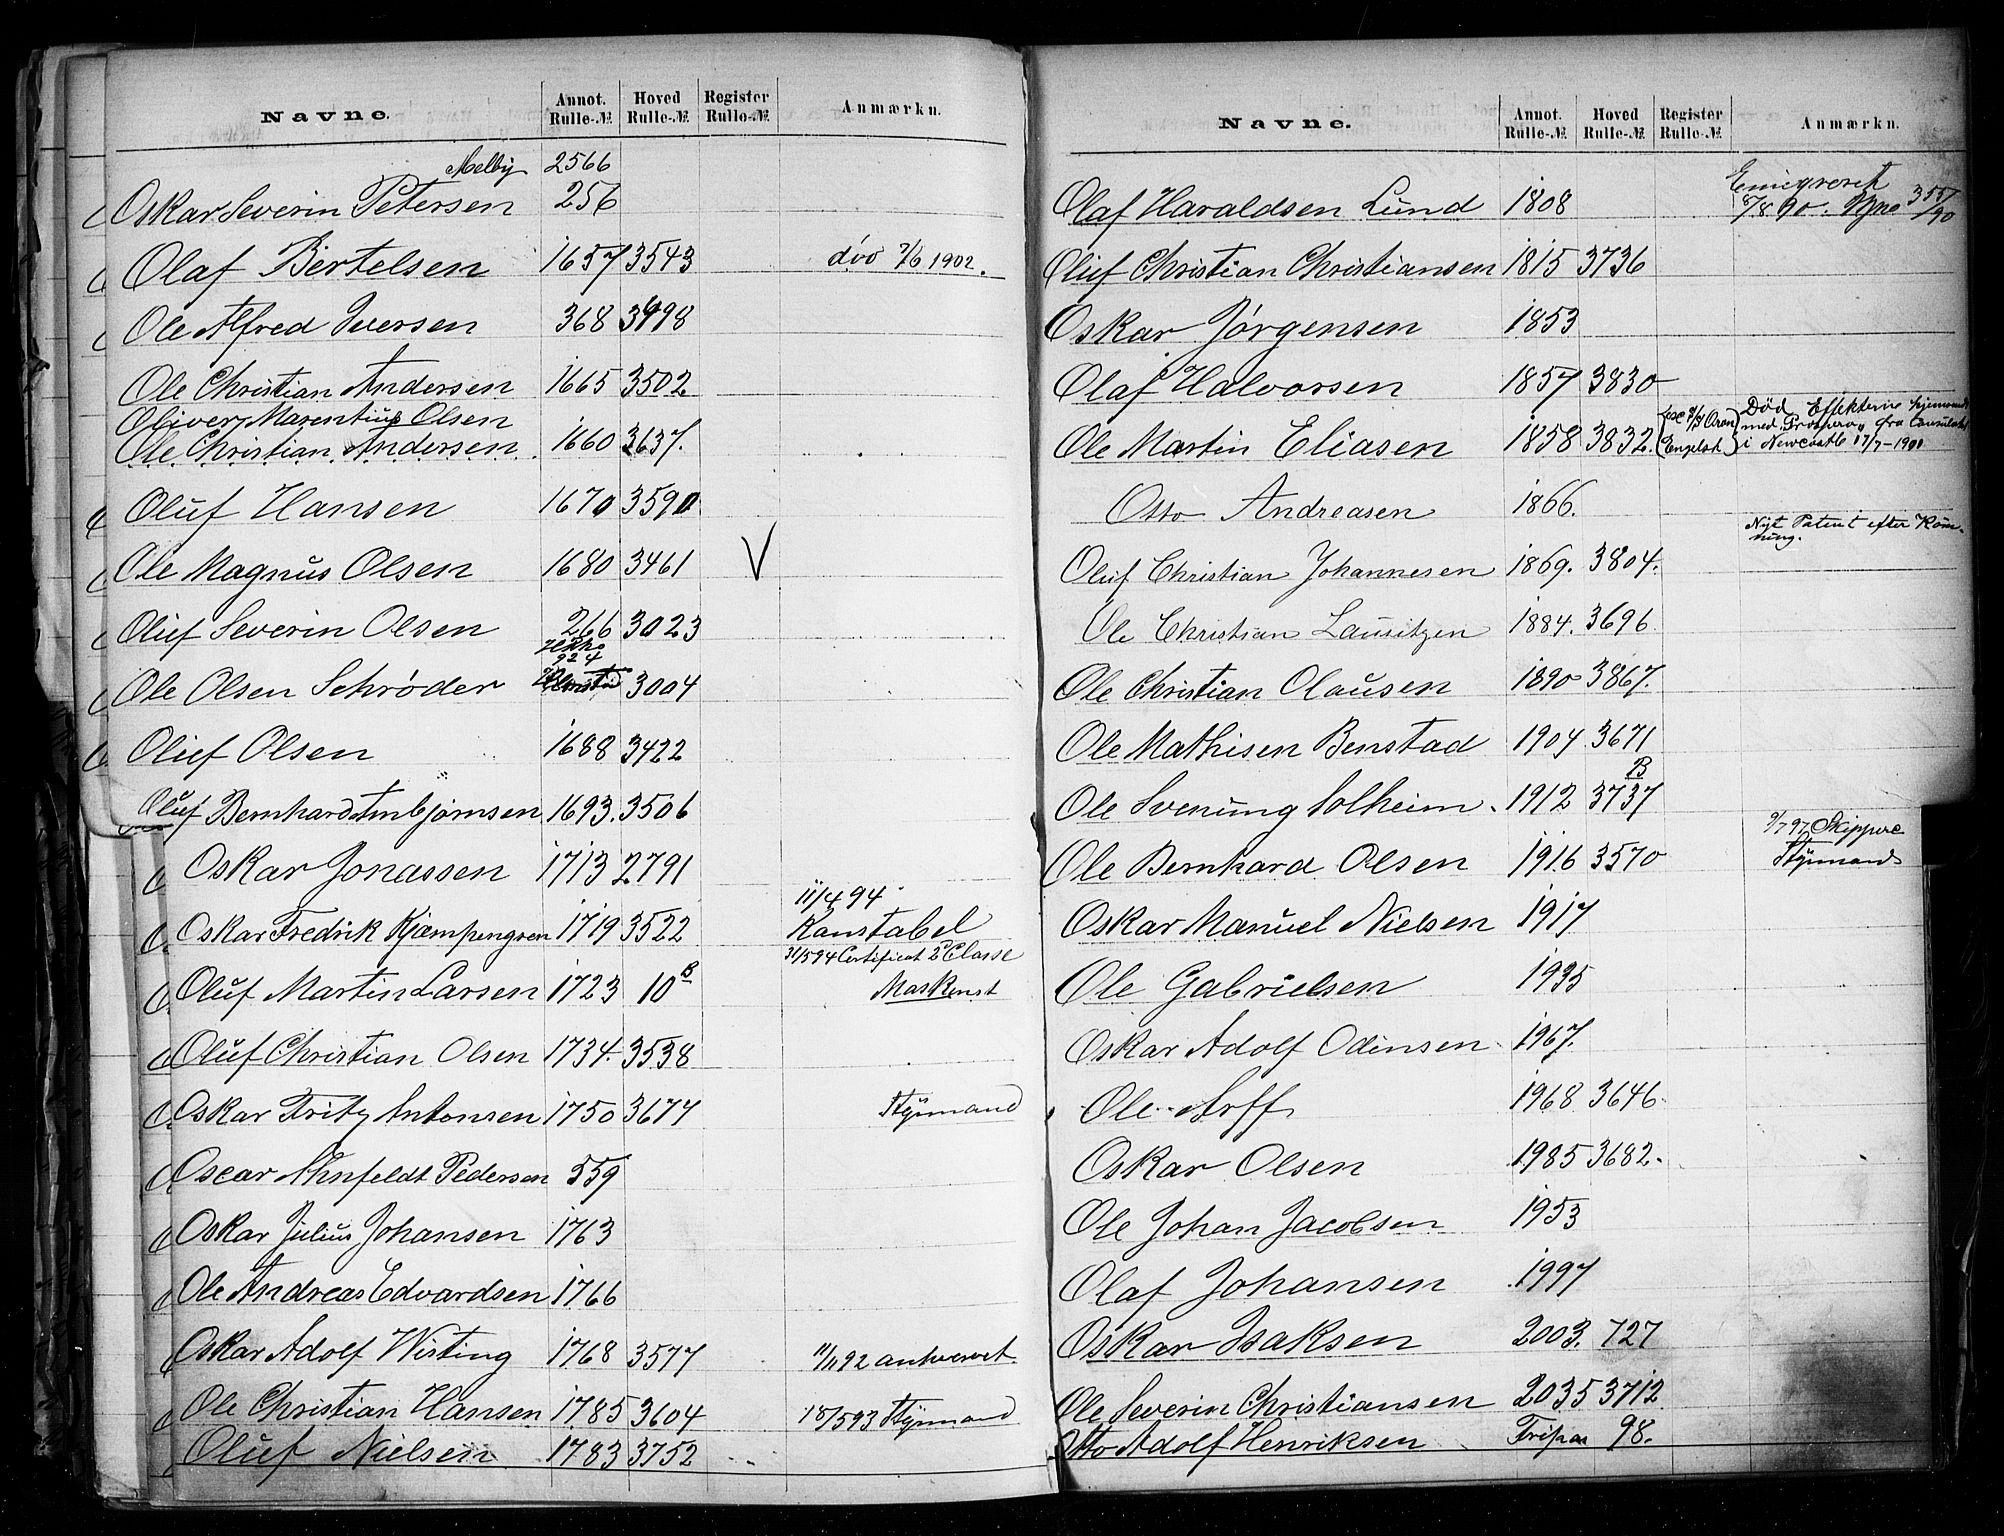 Navne. Annot. Rulle-№ Hoved Rulle-№ Register Rulle-№ Anmærkn.
Melby 2566
Oskar Severin Petersen 256
Olaf Bertelsen 1657 3543 1902.
Ole Alfred Iversen 368 3498
Ole Christian Andersen 1665 3502
Oliver Marentius Olsen
Ole Christian Andersen 1660 3637.
Oluf Hansen 1670 3590
Ole Magnus Olsen 1680 3461 V
Oluf Severin Olsen 266 3023
924
Ole Olsen Schrøder 3004
Oluf Olsen 1688 3422
Oluf Bernhard Arnbjørnsen 1693. 3506
Oskar Jonassen 1713 2791
11/4 94
Oskar Fredrik Kjæmpengren 1719 3522 Konstabel
31/5 94 Certificat 2 Classe
Oluf Martin Larsen 1723 10 B Maskinst
Oluf Christian Olsen 1734. 3538
Oskar Fritz Antonsen 1750 3677 Styrmand
Oscar Ahnfeldt Pedersen 559
Oskar Julius Johansen 1763
Ole Andreas Edvardsen 1766
Oskar Adolf Wisting 1768 3577 11/11 92
Ole Christian Hansen 1785 3604 18/5 93 Styrmand
Oluf Nielsen 1783 3752
Navne. Annot. Rulle-№ Hoved Rulle-№ Register Rulle-№ Anmærkn.
Emigreret
Olaf Haraldsen Lund 1808 8/8 90. 355/90
Oluf Christian Christiansen 1815 3736
Oskar Jørgensen 1853
Olaf Halvorsen 1857 3830
Død Effekterne hjemsendt
med "Prospero" fra Consulatet
Ole Martin Eliasen 1858 3832. Engelsk i Newcastle 17/7-1901
Otto Andreasen 1866.
Nyt Patent efter Røm-
ning.
Oluf Christian Johannesen 1869. 3804.
Ole Christian Lauritzen 1884. 3696
Ole Christian Clausen 1890 3867.
Ole Mathisen Benstad 1904 3671
B
Ole Svenung Solheim 1912 3737
9/7 97 Skippere
Ole Bernhard Olsen 1916 3570 Styrmand
Oskar Manuel Nielsen 1917
Ole Gabrielsen 1935
Oskar Adolf Odinsen 1967.
Ole Arff 1968 3646
Oskar Olsen 1985 3682.
Ole Johan Jacobsen 1953
Olaf Johansen 1997
Oskar Isaksen 2003. 727
Ole Severin Christiansen 2035 3712
Otto Adolf Henriksen 98.